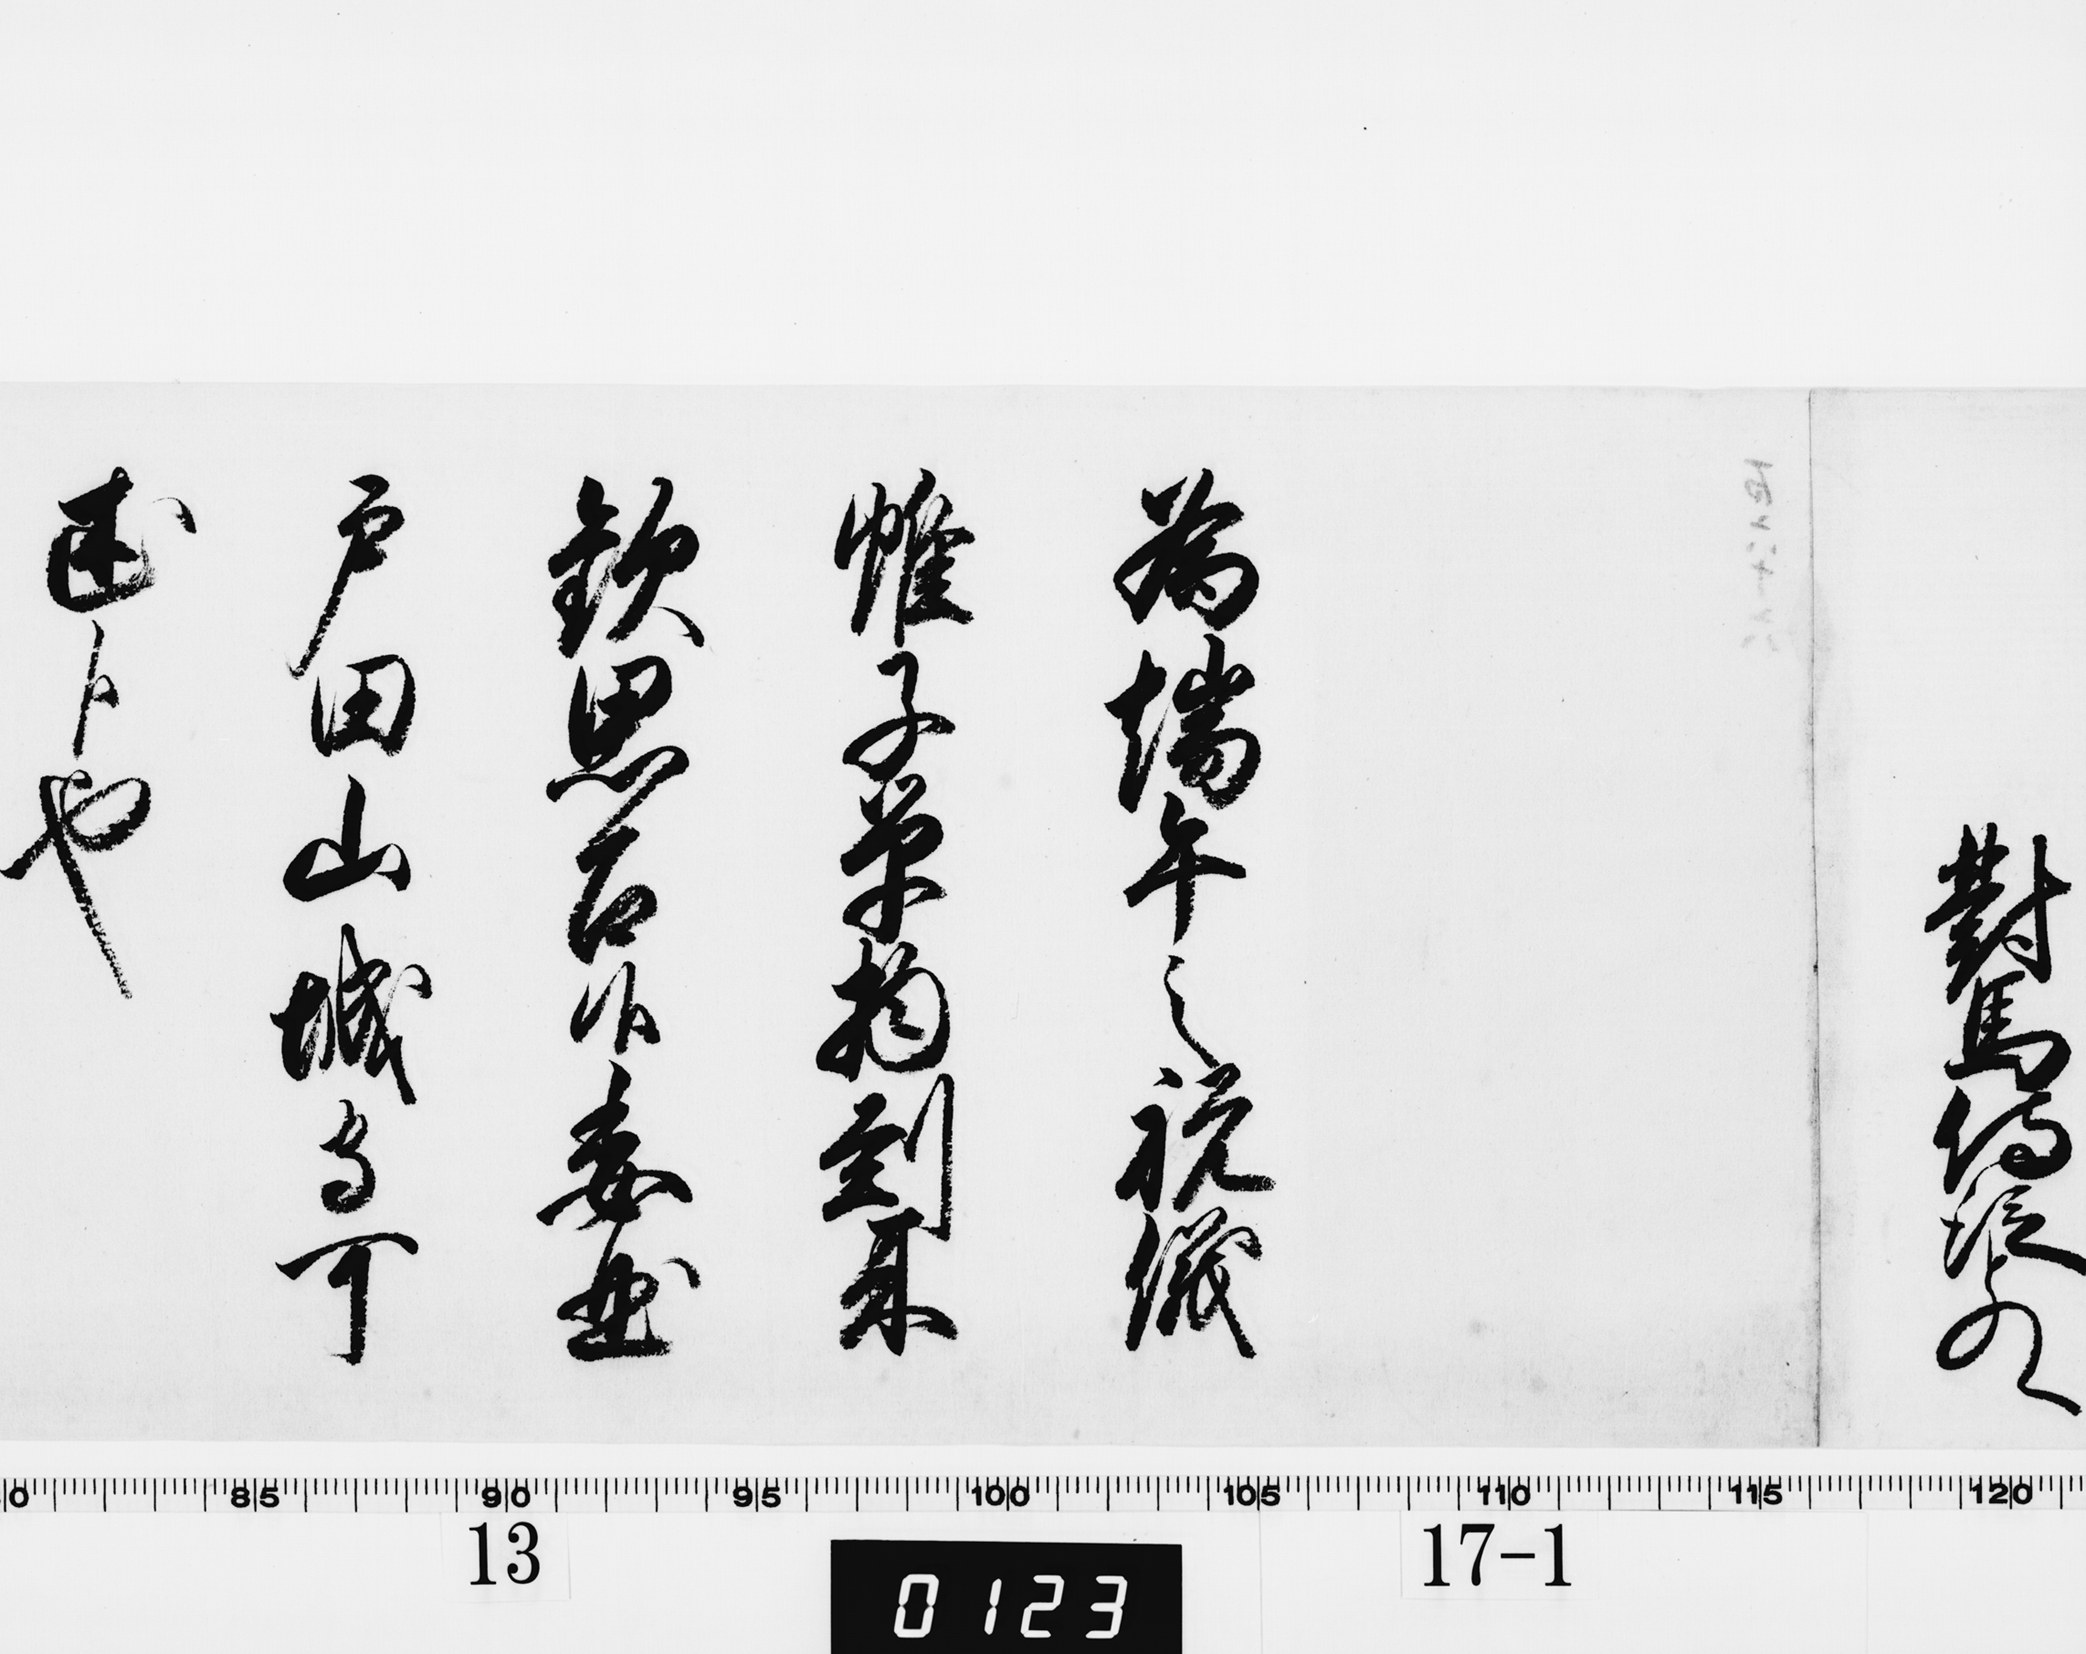 對馬侍従とのへ
為端午之祝儀
帷子単物到来
歓思召候委曲
戸田山城守可
述候也
85 90 95 100 105 110 115 120
13
17-1
0123